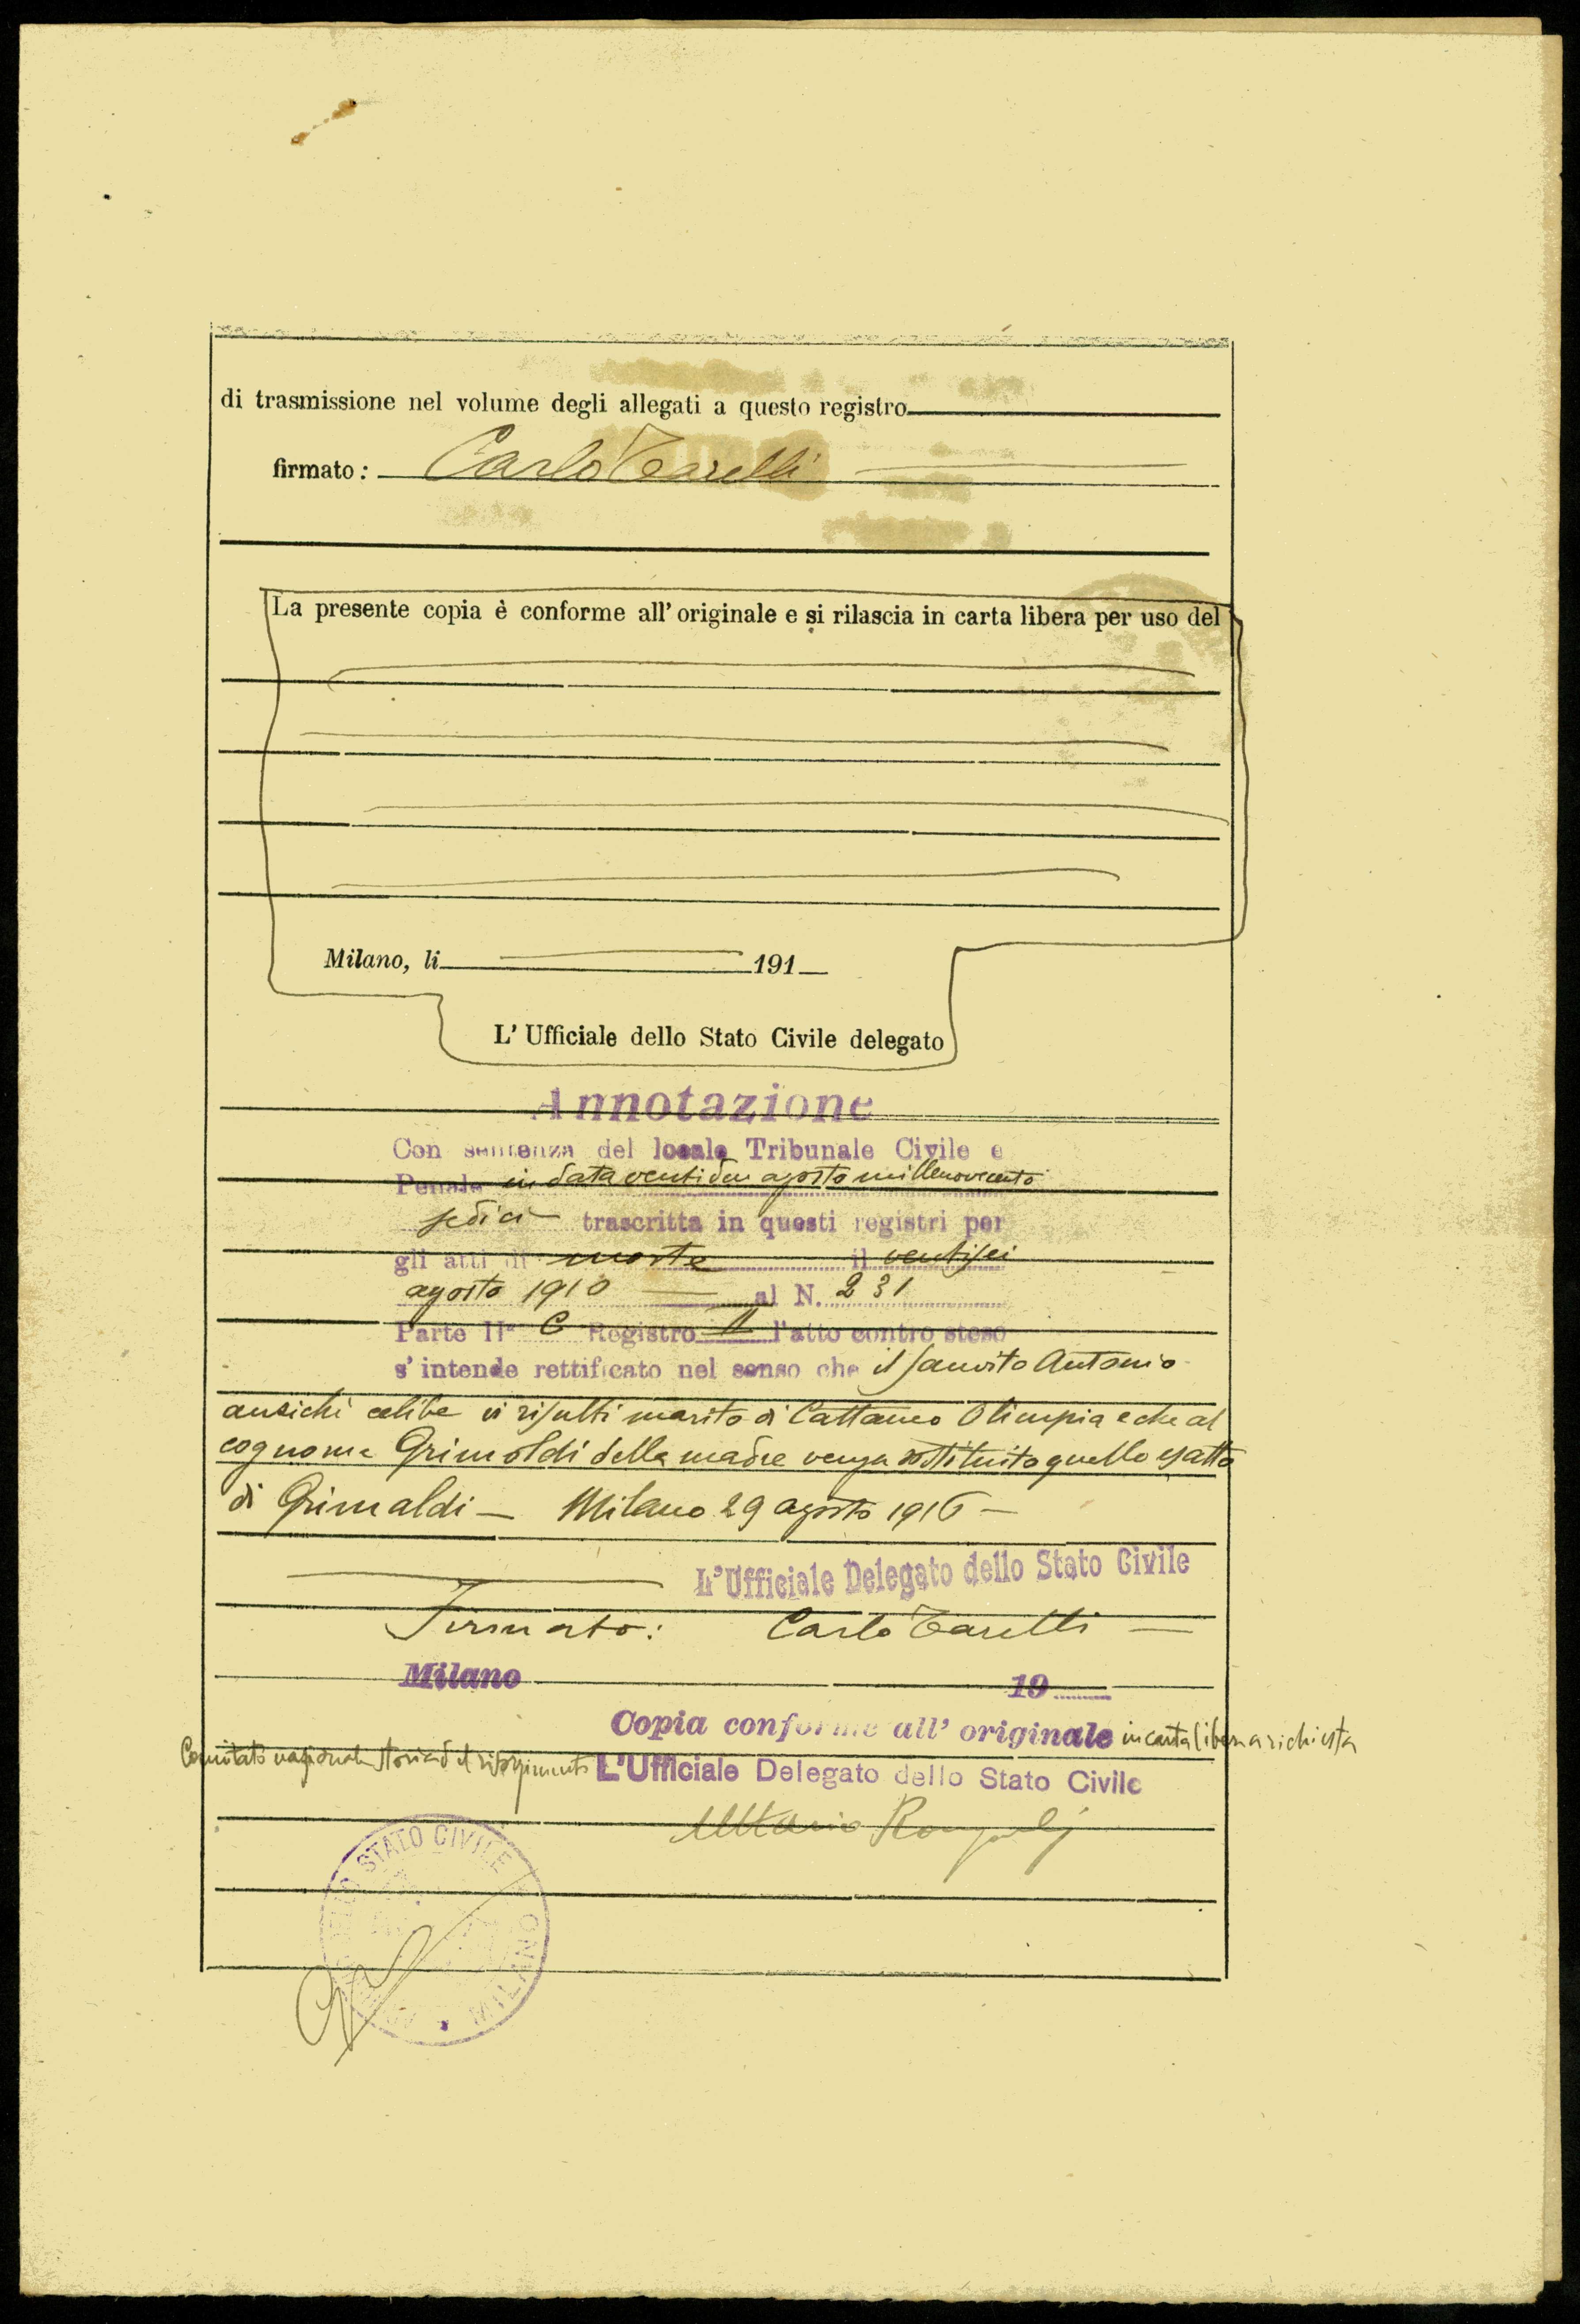 di trasmissione nel volume degli allegati a questo registro
firmato: Carlo Tarelli
La presente copia è conforme all' originale e si rilascia in carta libera per uso del
Milano, li 191
L' Ufficiale dello Stato Civile delegato
Annotazione
Con sentenza del locale Tribunale Civile e
Penale in data ventidue agosto millenovecento
sedici trascritta in questi registri per
gli atti di morte il ventisei
agosto 1916 al N. 231
Parte IIª C Registro II l'atto contro steso
s'intende rettificato nel senso che il Sanvito Antonio
anzichè celibe vi risulti marito di Cattaneo Olimpia e che al
cognome Grimoldi della madre venga sostituito quello esatto
di Grimaldi — Milano 29 agosto 1916 —
L'Ufficiale Delegato dello Stato Civile
Firmato: Carlo Tarelli —
Milano 19
Copia conforme all' originale in carta libera a richiesta
Comitato nazionale storia del risorgimento L'Ufficiale Delegato dello Stato Civile
STATO CIVILE
MILANO